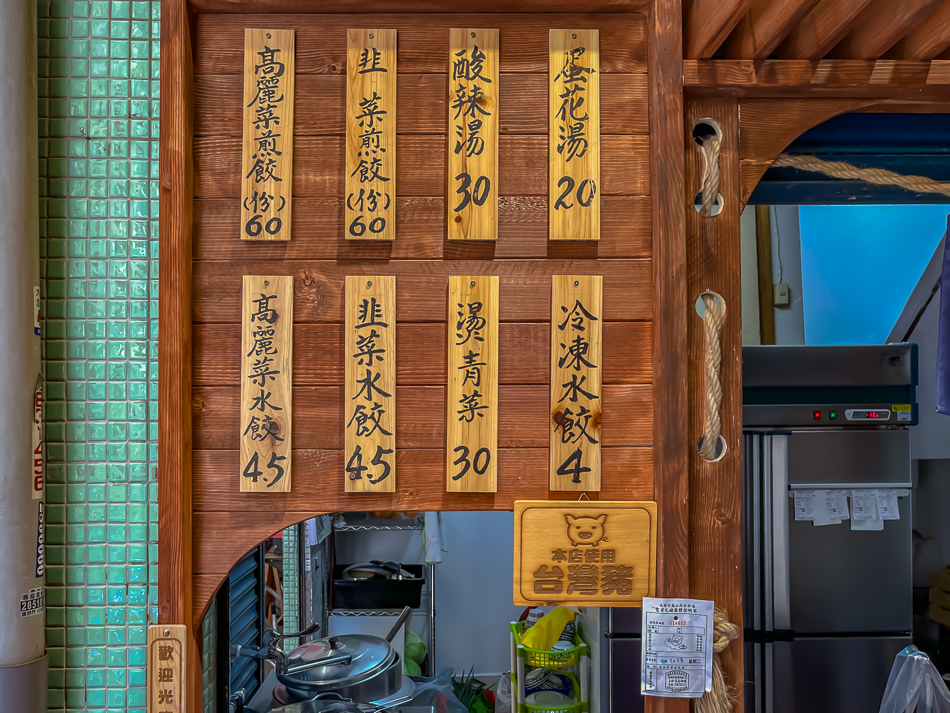 高麗菜煎餃
(份)
60
韭菜煎餃
(份)
60
酸辣湯
30
蛋花湯
20
高麗菜水餃
45
韭菜水餃
45
燙青菜
30
冷凍水餃
4
本店使用
台灣豬
歡迎光